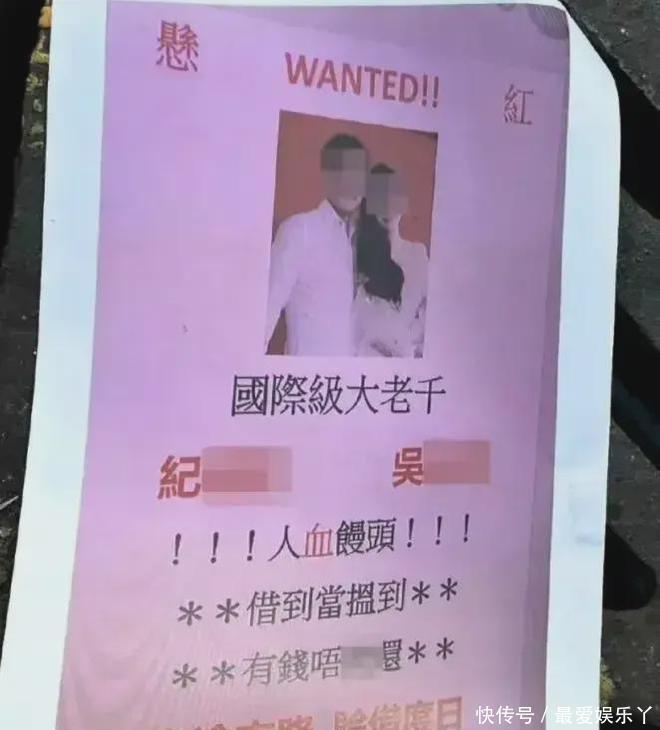 懸
WANTED!!
紅
國際級大老千
紀 吳
！！！人血饅頭！！！
＊＊借到當搵到＊＊
＊＊有錢唔 還＊＊
度日
快传号／最爱娱乐丫